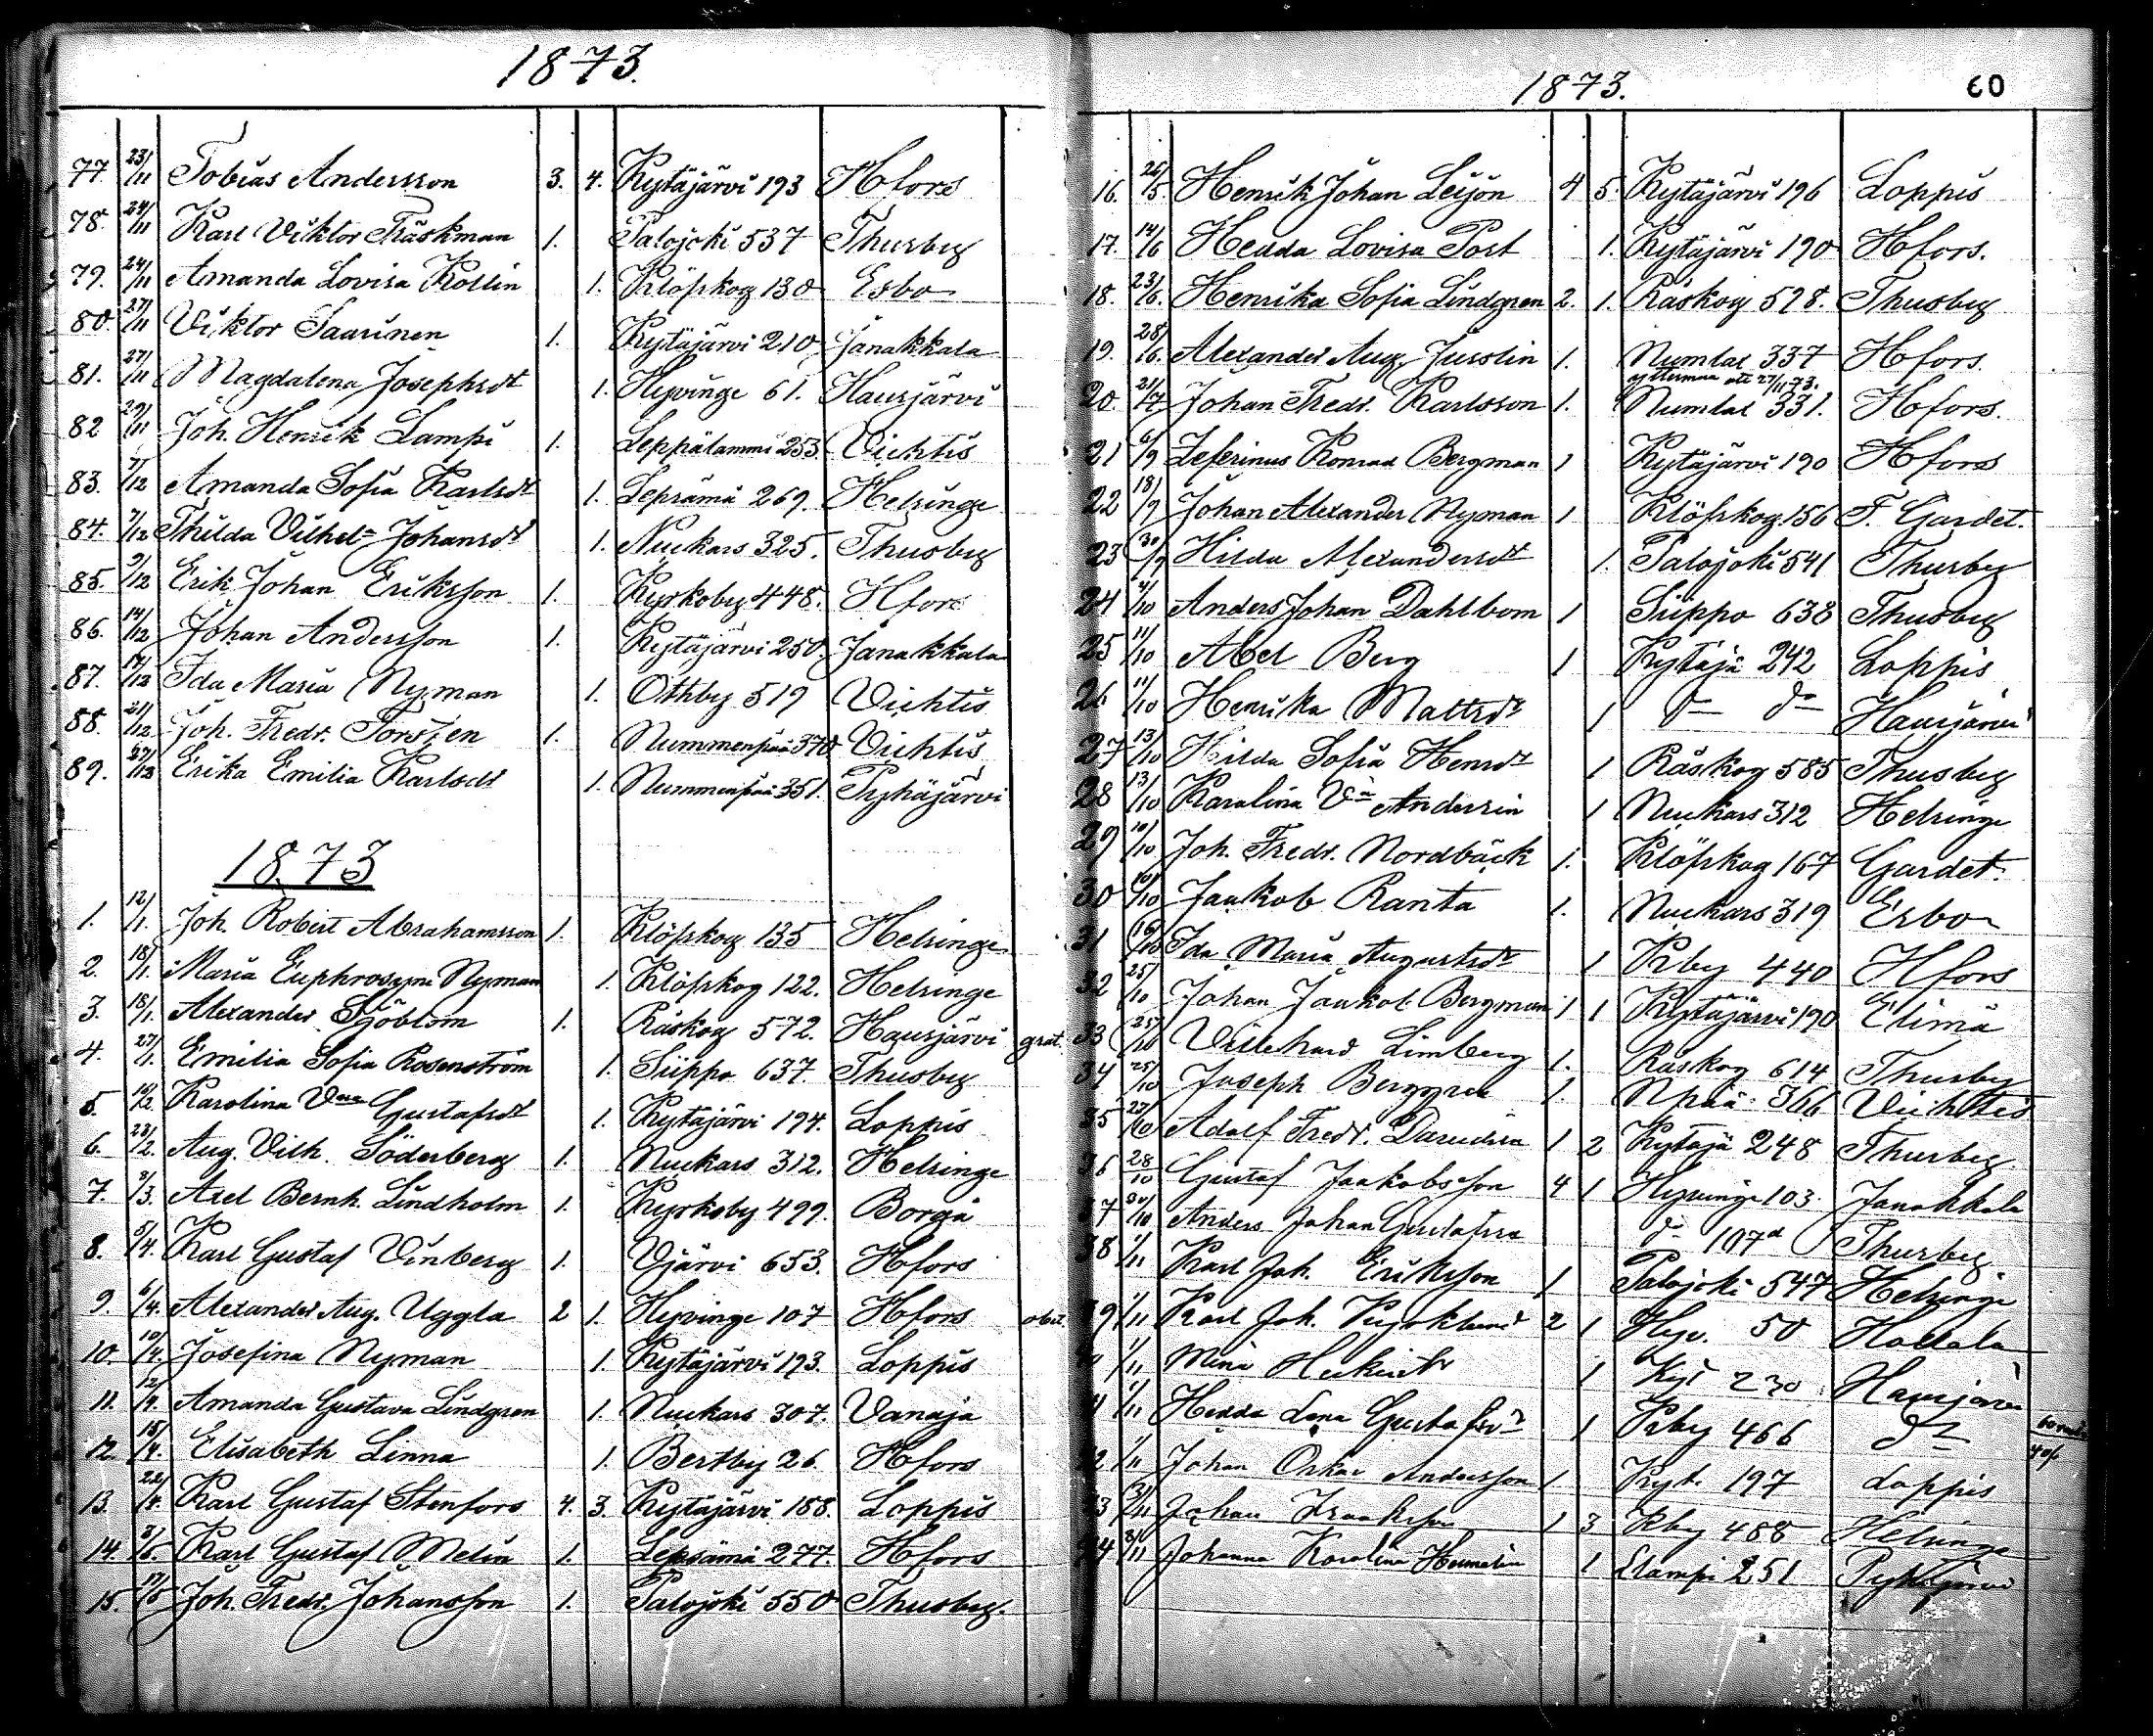 1873.
77. 23/11 Tobias Andersson 3. 4. Kytäjärvi 193 Hfors
78. 24/11 Karl Viktor Träskman 1. Palojoki 537 Thusby
79. 24/11 Amanda Lovisa Kollin 1. Klöfskog 130 Esbo
80. 27/11 Viktor Saarinen 1. Kytäjärvi 210 Janakkala
81. 27/11 Magdalena Josephsdt 1. Hyvinge 61. Hausjärvi
82 29/11 Joh. Henrik Lampi 1. Leppälammi 253. Vichtis
83. 7/12 Amanda Sofia Karlsdt 1. Lepsämä 269. Helsinge
84. 7/12 Thilda Vilhel- Johansdt 1. Nuckars 325. Thusby
85. 9/12 Erik Johan Eriksson 1. Kyrkoby 448. Hfors
86. 14/12 Johan Andersson 1. Kytäjärvi 250 Janakkala
87. 17/12 Ida Maria Nyman 1. Othby 519 Vichtis
88. 21/12 Joh. Fredr. Forsten 1. Nummenpää 370 Vichtis
89. 27/12 Erika Emilia Karlsdt 1. Nummenpää 351. Pyhäjärvi
1873
1. 12/1. Joh. Robert Abrahamsson 1. Klöfskog 135 Helsinge
2. 18/1. Maria Euphrosyne Nyman 1. Klöfskog 122. Helsinge
3. 18/1. Alexander Sjöblom 1. Råskog 572. Hausjärvi grat.
4. 27/1. Emilia Sofia Rosenström 1. Siippo 637. Thusby
5. 16/2. Karolina Vna Gustafsdt 1. Kytäjärvi 194. Loppis
6. 23/2. Aug. Vilh. Söderberg 1. Nuckars 312. Helsinge
7. 8/3. Axel Bernh. Lindholm 1. Kyrkoby 499. Borgå
8. 5/4. Karl Gustaf Vinberg 1. Vjärvi 653. Hfors
9. 6/4. Alexander Aug. Uggla 2 1. Hyvinge 107 Hfors obet.
10. 10/4. Josefina Nyman 1. Kytäjärvi 193. Loppis
11. 12/4. Amanda Gustava Lindgren 1. Nuckars 307. Vanaja
12. 15/4. Elisabeth Lenna 1. Bertby 26. Hfors
13. 22/4. Karl Gustaf Stenfors 4. 3. Kytäjärvi 188. Loppis
14. 3/5. Karl Gustaf Melin 1. Lepsämä 277. Hfors
15. 17/5 Joh. Fredr. Johansson 1. Palojoki 550 Thusby.
1873. 60
16. 26/5. Henrik Johan Leijon 4 5. Kytäjärvi 196 Loppis
17. 14/6 Hedda Lovisa Post 1. Kytäjärvi 190 Hfors.
18. 23/6. Henrika Sofia Lindgren 2. 1. Råskog 598. Thusby
19. 28/6. Alexander Aug. Jusslin 1. Numlax 337 Hfors.
27/11 73.
20. 21/7 Johan Fredr. Karlsson 1. Numlax 331. Hfors.
21 6/9 Zeferinus Konrad Bergman 1 Kytäjärvi 190 Hfors
22 18/9 Johan Alexander Nyman 1 Klöfskog 156 F. Gardet.
23 30/9 Hilda Alexandersdt 1. Palojoki 541 Thusby
24 4/10 Anders Johan Dahlbom 1 Siippo 638 Thusby
25 11/10 Abel Berg 1 Kytäjä 242 Loppis
26 11/10 Henrika Mattsdr 1 do do Hausjärvi
27 13/10 Hilda Sofia Henrdt 1 Råskog 585 Thusby
28 13/10 Karolina Va Andersin 1 Nuckars 312 Helsinge
29 10/10 Joh. Fredr. Nordbäck 1. Klöfskog 167 Gardet.
30 16/10 Jaakob Ranta 1. Nuckars 319 Esbo
31 16/10 Ida Maria Augustsdr 1 Kby 440 Hfors
32 25/10 Johan Jaakob Bergman 1 1 Kytäjärvi 190 Elimä
33 25/10 Villehard Limberg 1. Råskog 614 Thusby
34 25/10 Joseph Berggren 1 Npää 366 Vichtis
35 27/10 Adolf Fredr. 1 2 Kytäjä 248 Thusby.
36 28/10 Gustaf Jaakobsson 4 1 Hyvinge 103. Janakkala
37 30/10 Anders Johan Gustafsson do 107a Thusby
38 1/11 Karl Joh. Eriksson 1 Palojoki 547 Helsinge
39 1/11 Karl Joh. Kyrklund 2 1 Hyv. 50 Hollola
1/11 Mina 1 Kyt 230 Hausjärvi
41 1/11 Hedda Lena Gustafsdr 1 Kby 466 do
42 1/11 Johan Oskar Andersson 1 Kyt. 197 Loppis
43 3/11 Johan Isaaksson 1 3 Kby 488 Helsinge
44 3/11 Johanna Karolina 1 Llampi 251 Pyhäjärvi